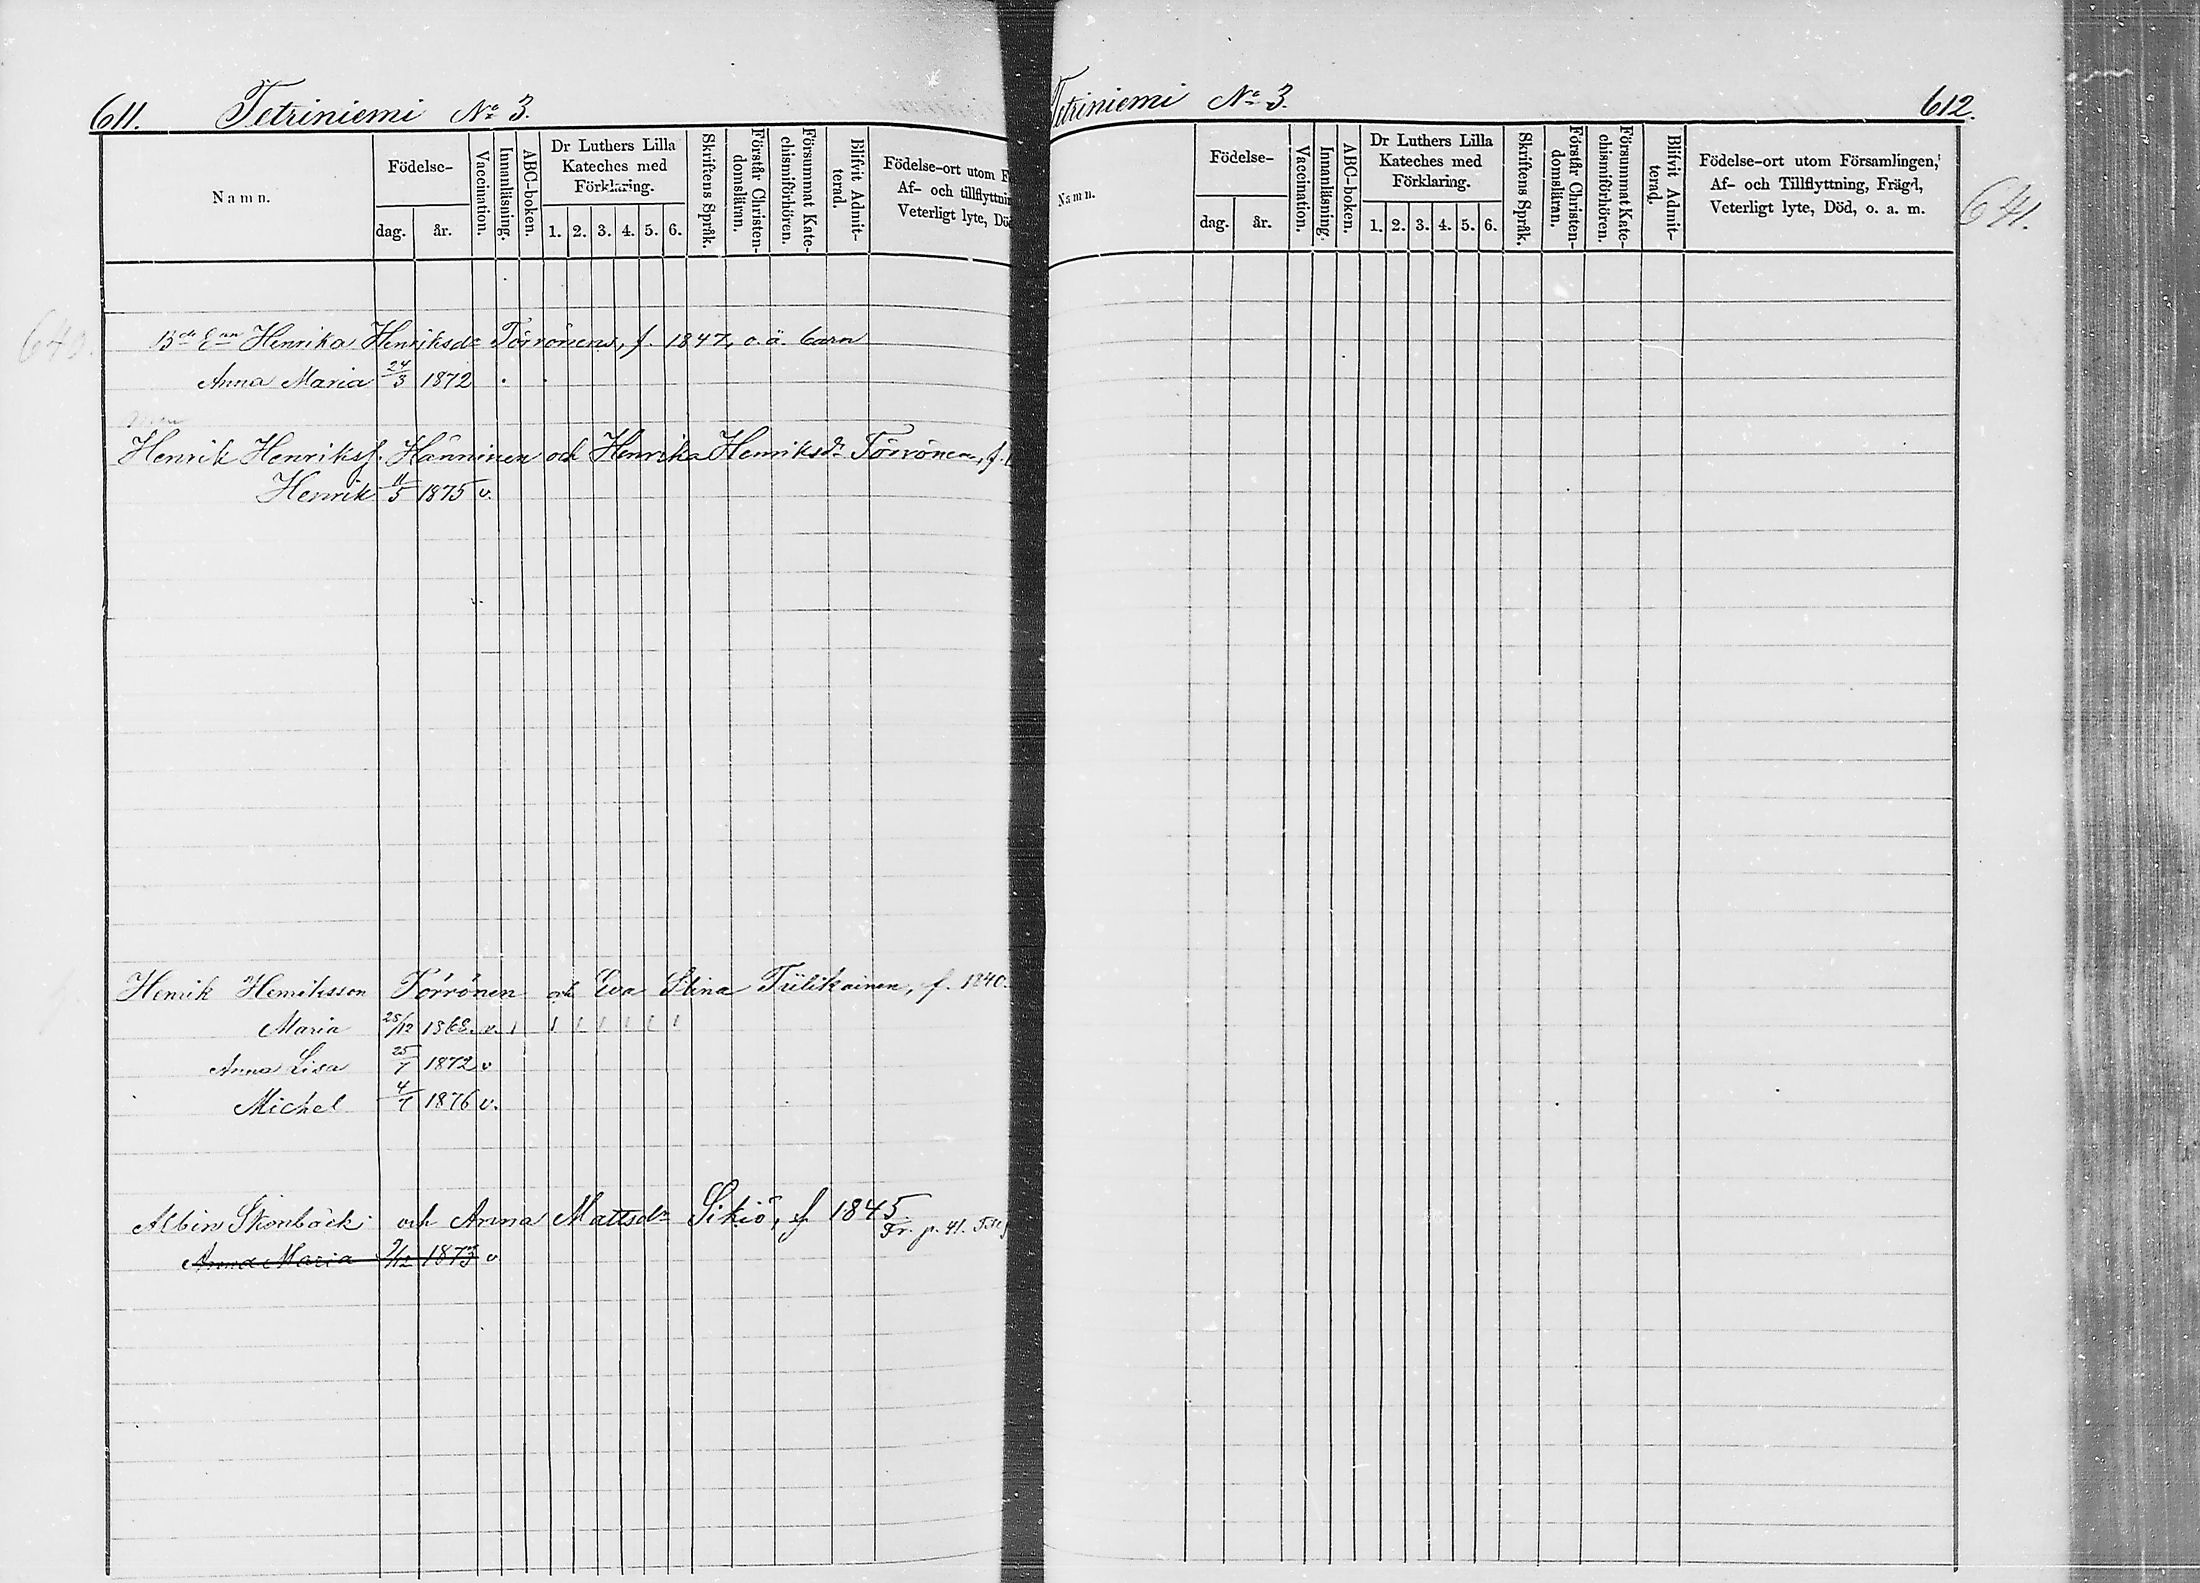 611. Tetriniemi No 3.
Namn.
Födelse-
dag.
år.
Vaccination.
Innanläsning.
ABC-boken.
Dr Luthers Lilla
Kateches med
Förklaring.
1. 2. 3. 4. 5. 6.
Skriftens Språk.
Förstår Christen-
domsläran.
Försummat Kate-
chismiförhören.
Blifvit Admit-
terad.
Födelse-ort utom F
Af- och tillflyttnin
Veterligt lyte, Dö
640.
Henrika Henriksdr Törrönens, f. 1847, o.ä. barn
Anna Maria 24/3 1872
Henrik Henrikss. Hänninen och Henrika Henriksdr Törrönen, f.
Henrik 11/5 1875 v.
Henrik Henriksson Törrönen och Eva Stina Tiilikainen, f. 1840.
Maria 25/12 1868. v. 1 1 1 1 1 1 1
Anna Lisa 25/7 1872 v
Michel 4/7 1876 v.
Albin Stenbäck och Anna Mattsdr Sikiö, f 1845
Fr. p. 41.
Anna Maria 9/12 1873 v
Tetriniemi No 3. 612.
Namn.
Födelse-
dag.
år.
Vaccination.
Innanläsning.
ABC-boken.
Dr Luthers Lilla
Kateches med
Förklaring.
1. 2. 3. 4. 5. 6.
Skriftens Språk.
Förstår Christen-
domsläran.
Försummat Kate-
chismiförhören.
Blifvit Admit-
terad.
Födelse-ort utom Församlingen,
Af- och Tillflyttning, Frägd,
Veterligt lyte, Död, o. a. m.
641.